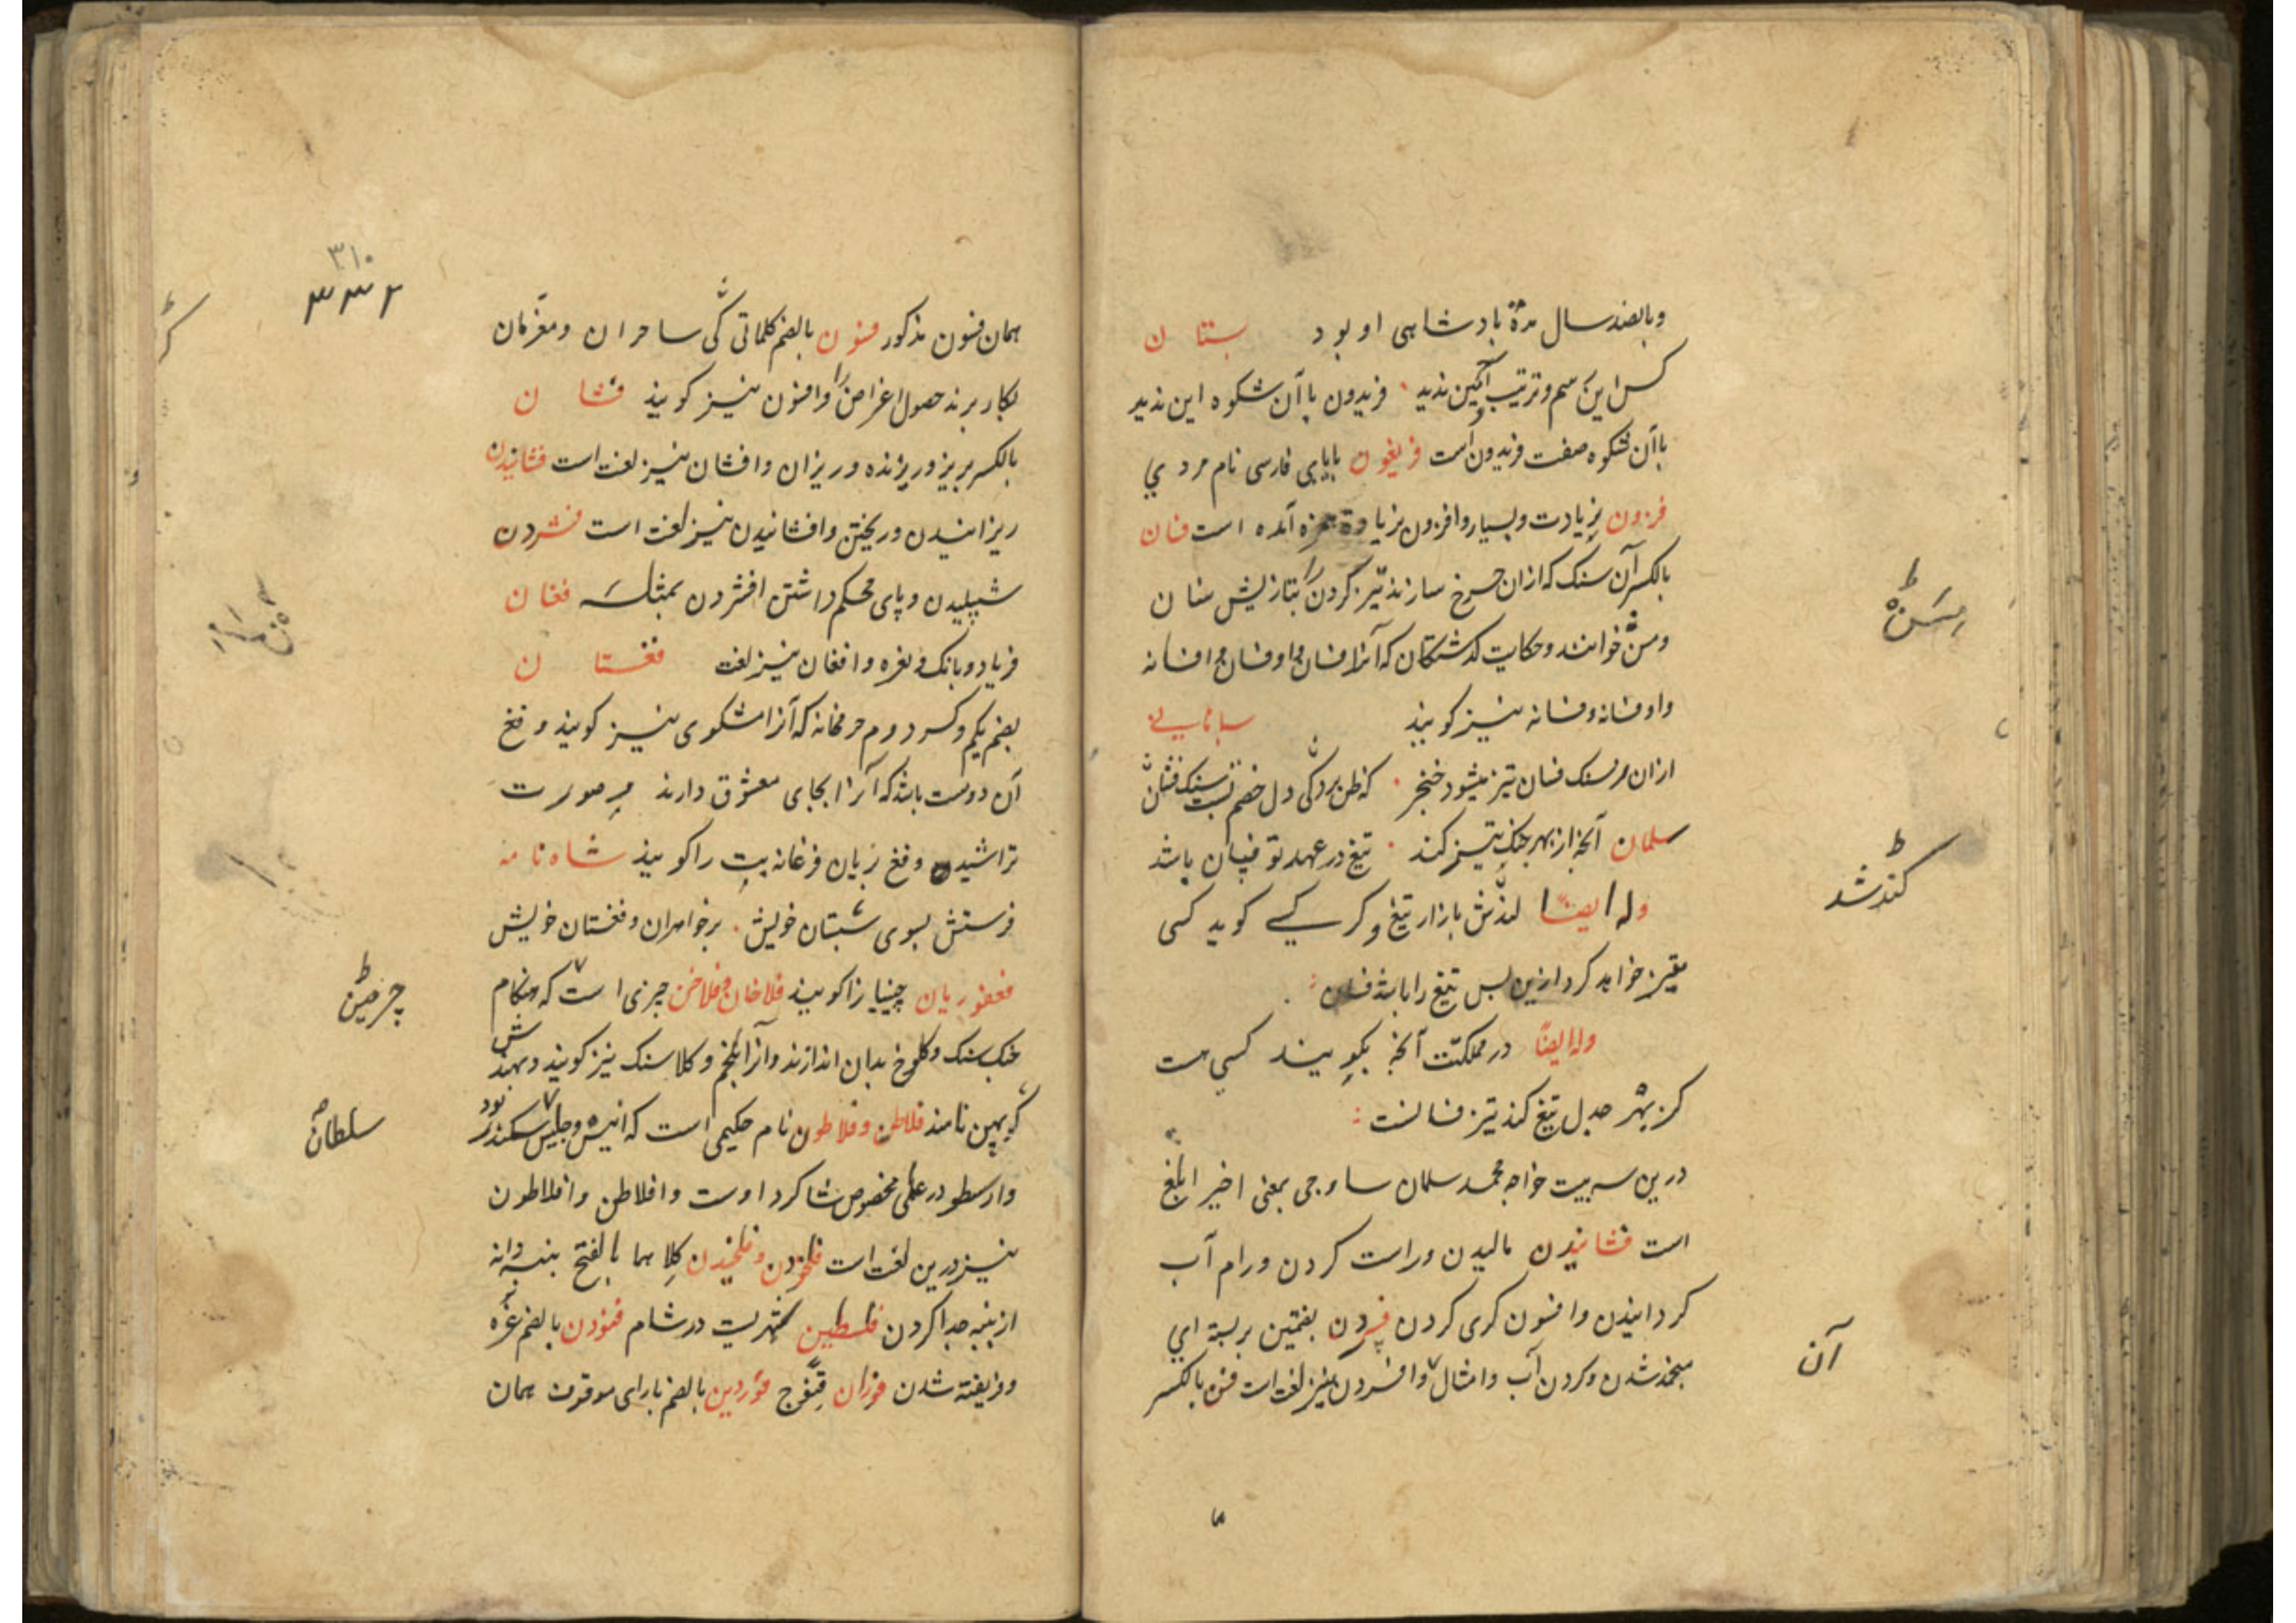 وبانصد سال مدة بادشاهی او بود بستان
کس این رسم و ترتیب و آیین ندید فریدون باآن شکوه این ندید
باآن شکوه صفت فریدون است فریغون بایای فارسی نام مردي
فزون بزیادت و بسیار و افزون بزیادة همزه آمده است فسان
بالکسر آن سنک که ازان چرخ سازند تیز کردن را بتازیش سنان
ومسن خوانند وحکایت کذشتکان که آنرا فسان و اوفسان و افسانه
واوفسانه وفسانه نیز کویند
ازان بر سنک فسان تیز میشود خنجر که ظن برد کی دل خصم تست سنک فسان
سلمان آنجه از بهر جنک تیز کند تیغ در عهد تو فسان باشد
وله ایضا بازار تیغ و کر کسی کوید کسی
تیز خواهد کرد ازین بس تیغ را باشد فسان
وله ایضا در مملکتت آنجه بکویند کسي هست
کز بهر جدل تیغ کند تیز فسانست
درین سه بیت خواجه محمد سلمان ساوجی بمعنی اخیر ابلغ
است فشانیدن مالیدن وراست کردن ورام آب
کردانیدن وافسون کری کردن فسردن بفتحتین بر بسته ای
منجمد شدن وکردن آب وامثال آن وافسردن نیز لغت است فسن بالکسر
مسن
کند شد
آن
۳۱۰
۳۳۲
همان فسون مذکور فسون بالضم کلماتی کی ساحران ومعزمان
بکار برند حصول اغراض را وافسون نیز کویند فشان
بالکسر بریز وریزنده وریزان وافشان نیز لغت است فشانیدن
ریزانیدن وریختن وافشانیدن نیز لغت است فشردن
شپیلیدن وپای محکم داشتن افشردن بمثله فغان
فریاد وبانک ونعره وافغان نیز لغت فغستان
بضم یکم وکسر دوم حرمخانه که آنرا مشکوی نیز کویند وفغ
آن دوست باشد که آنرا بجای معشوق دارند بر صورت
تراشیده وفغ بزبان فرغانه بت را کویند شاه نامه
فرستش بسوی شبستان خویش بر خواهران وفغستان خویش
فغفوریان چینیانرا کویند فلاخان وفلاخن چیزی است که هنکام
جنک سنک وکلوخ بدان اندازند وآنرا بلخم وکلاسنک نیز کویند وبهندش
کوپهن نامند فلاطن وفلاطون نام حکیمی است که انیس وجلیس سکندر بود
وارسطو در علمی مخصوص شاکرد اوست وافلاطن وافلاطون
نیز درین لغت است فلخودن وفلخیدن کلاهما بالفتح پنبه دانه
از پنبه جدا کردن فلسطین شهریست در شام فنودن بالضم غره
وفریفته شدن فوزان فوردین بالضم بارای موقوف همان
چرمین
سلطان